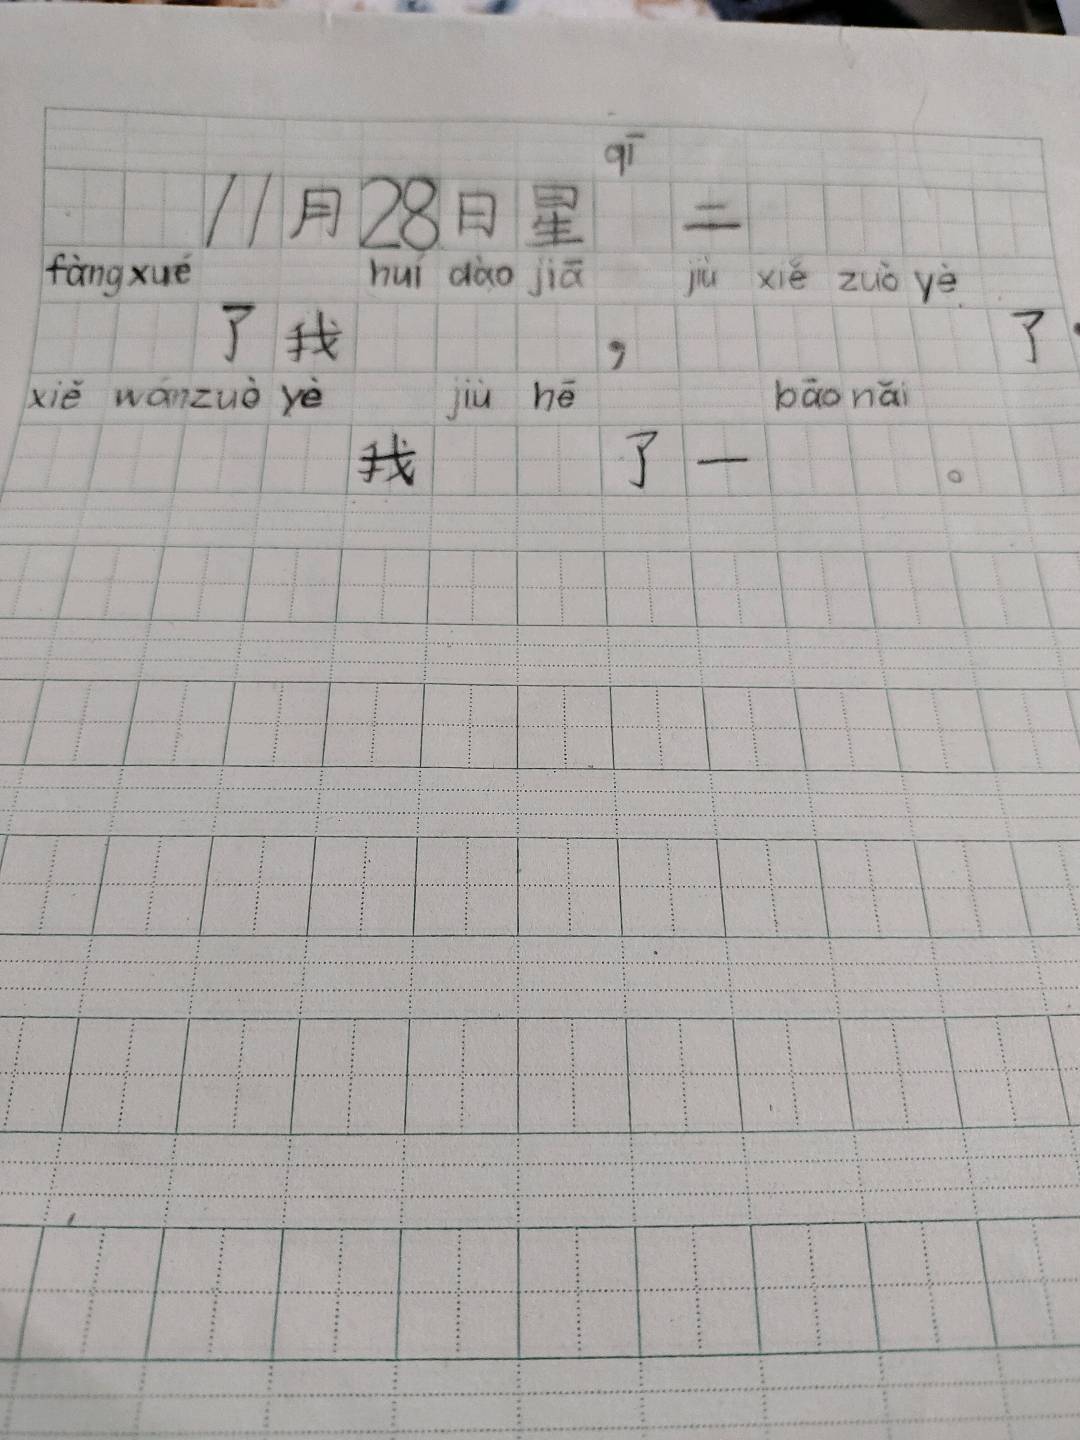 qī
11月28日星 二
fàngxué huí dào jiā jiù xiě zuò yè
了我 , 了.
xiě wánzuò yè jiù hē bāo nǎi
我 了一 。